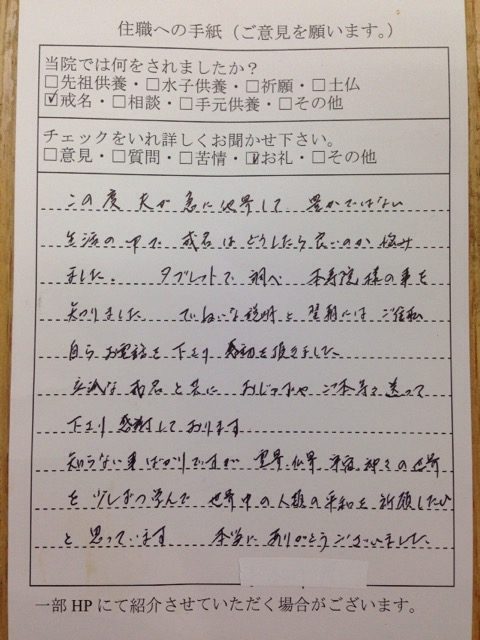 住職への手紙（ご意見を願います。）
当院では何をされましたか？
□先祖供養・□水子供養・□祈願・□土仏
☑戒名・□相談・□手元供養・□その他
チェックをいれ詳しくお聞かせ下さい。
□意見・□質問・□苦情・☑お礼・□その他
この度 夫が 急に他界して 豊かではない
生活の中で 戒名はどうしたら良いのか 悩み
ました。 タブレットで 調べ 本寿院様の事を
知りました ていねいな説明と 翌朝には ご住職
自らお電話を下さり 感動を頂きました
立派な戒名と共に おじずやご本尊を送って
下さり 感謝しております
知らない事ばかりですが 霊界 仏界 神々の世界
を少しずつ学んで 世界中の人類の平和を祈願したい
と思っています 本当にありがとうございました
一部HPにて紹介させていただく場合がございます。